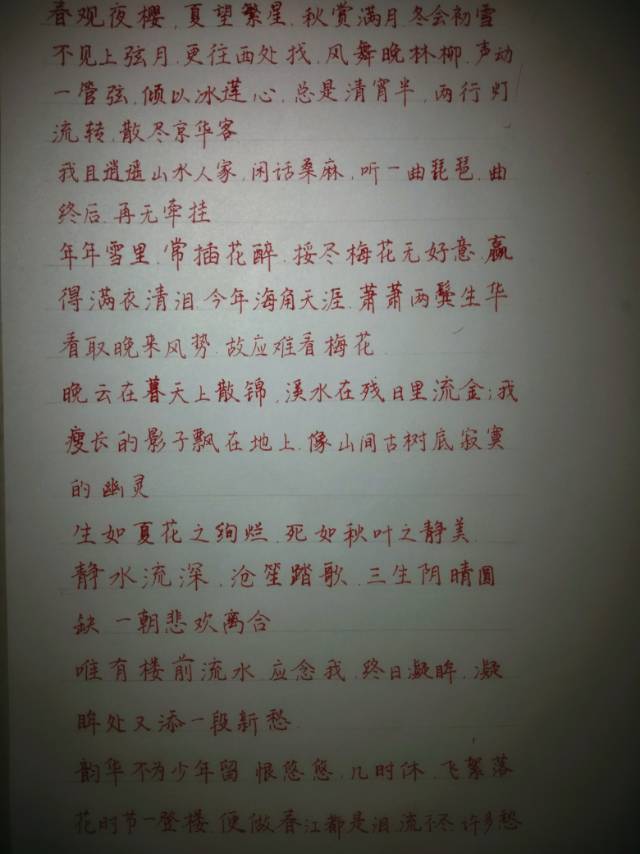 春观夜樱,夏望繁星,秋赏满月,冬会初雪
不见上弦月,更往西处找,风舞晚林柳,声动
一管弦,倾以冰莲心,总是清宵半,两行灯
流转,散尽京华客
我且逍遥山水人家,闲话桑麻,听一曲琵琶,曲
终后,再无牵挂
年年雪里,常插花醉,挼尽梅花无好意,赢
得满衣清泪,今年海角天涯,萧萧两鬓生华
看取晚来风势,故应难看梅花
晚云在暮天上散锦,溪水在残日里流金;我
瘦长的影子飘在地上,像山间古树底寂寞
的幽灵
生如夏花之绚烂,死如秋叶之静美
静水流深,沧笙踏歌,三生阴晴圆
缺,一朝悲欢离合
唯有楼前流水,应念我,终日凝眸,凝
眸处又添一段新愁
韵华不为少年留,恨悠悠,几时休,飞絮落
花时节一登楼,便做春江都是泪,流不尽许多愁